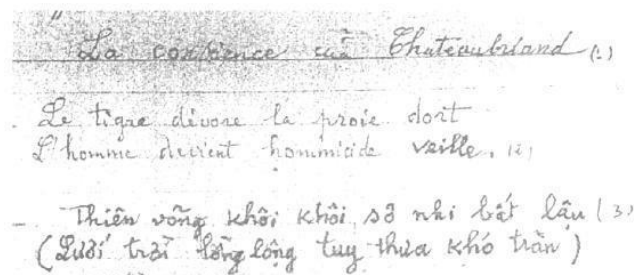 "La conscience của Chateaubriand (1)
. Le tigre dévore la proie dort
L'homme devient hommicide veille. (2)
- Thiên võng khôi khôi sơ nhi bất lậu (3)
(Lưới trời lồng lộng tuy thưa khó trằn)